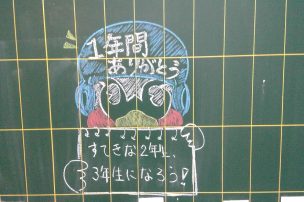 1年間
ありがとう
すてきな2年生、
3年生になろう!